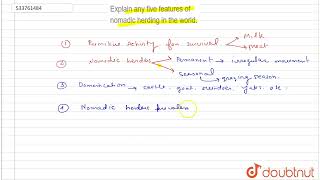 533761484
Explain any five features of
nomadic herding in the world.
① Primitive activity for survival → Milk
→ meat
② Nomadic herders → Permanent → irregular movement
→ Seasonal → grazing season.
③ Domestication → cattle, goat, reindeer, yaks, etc.
④ Nomadic herders
doubtnut